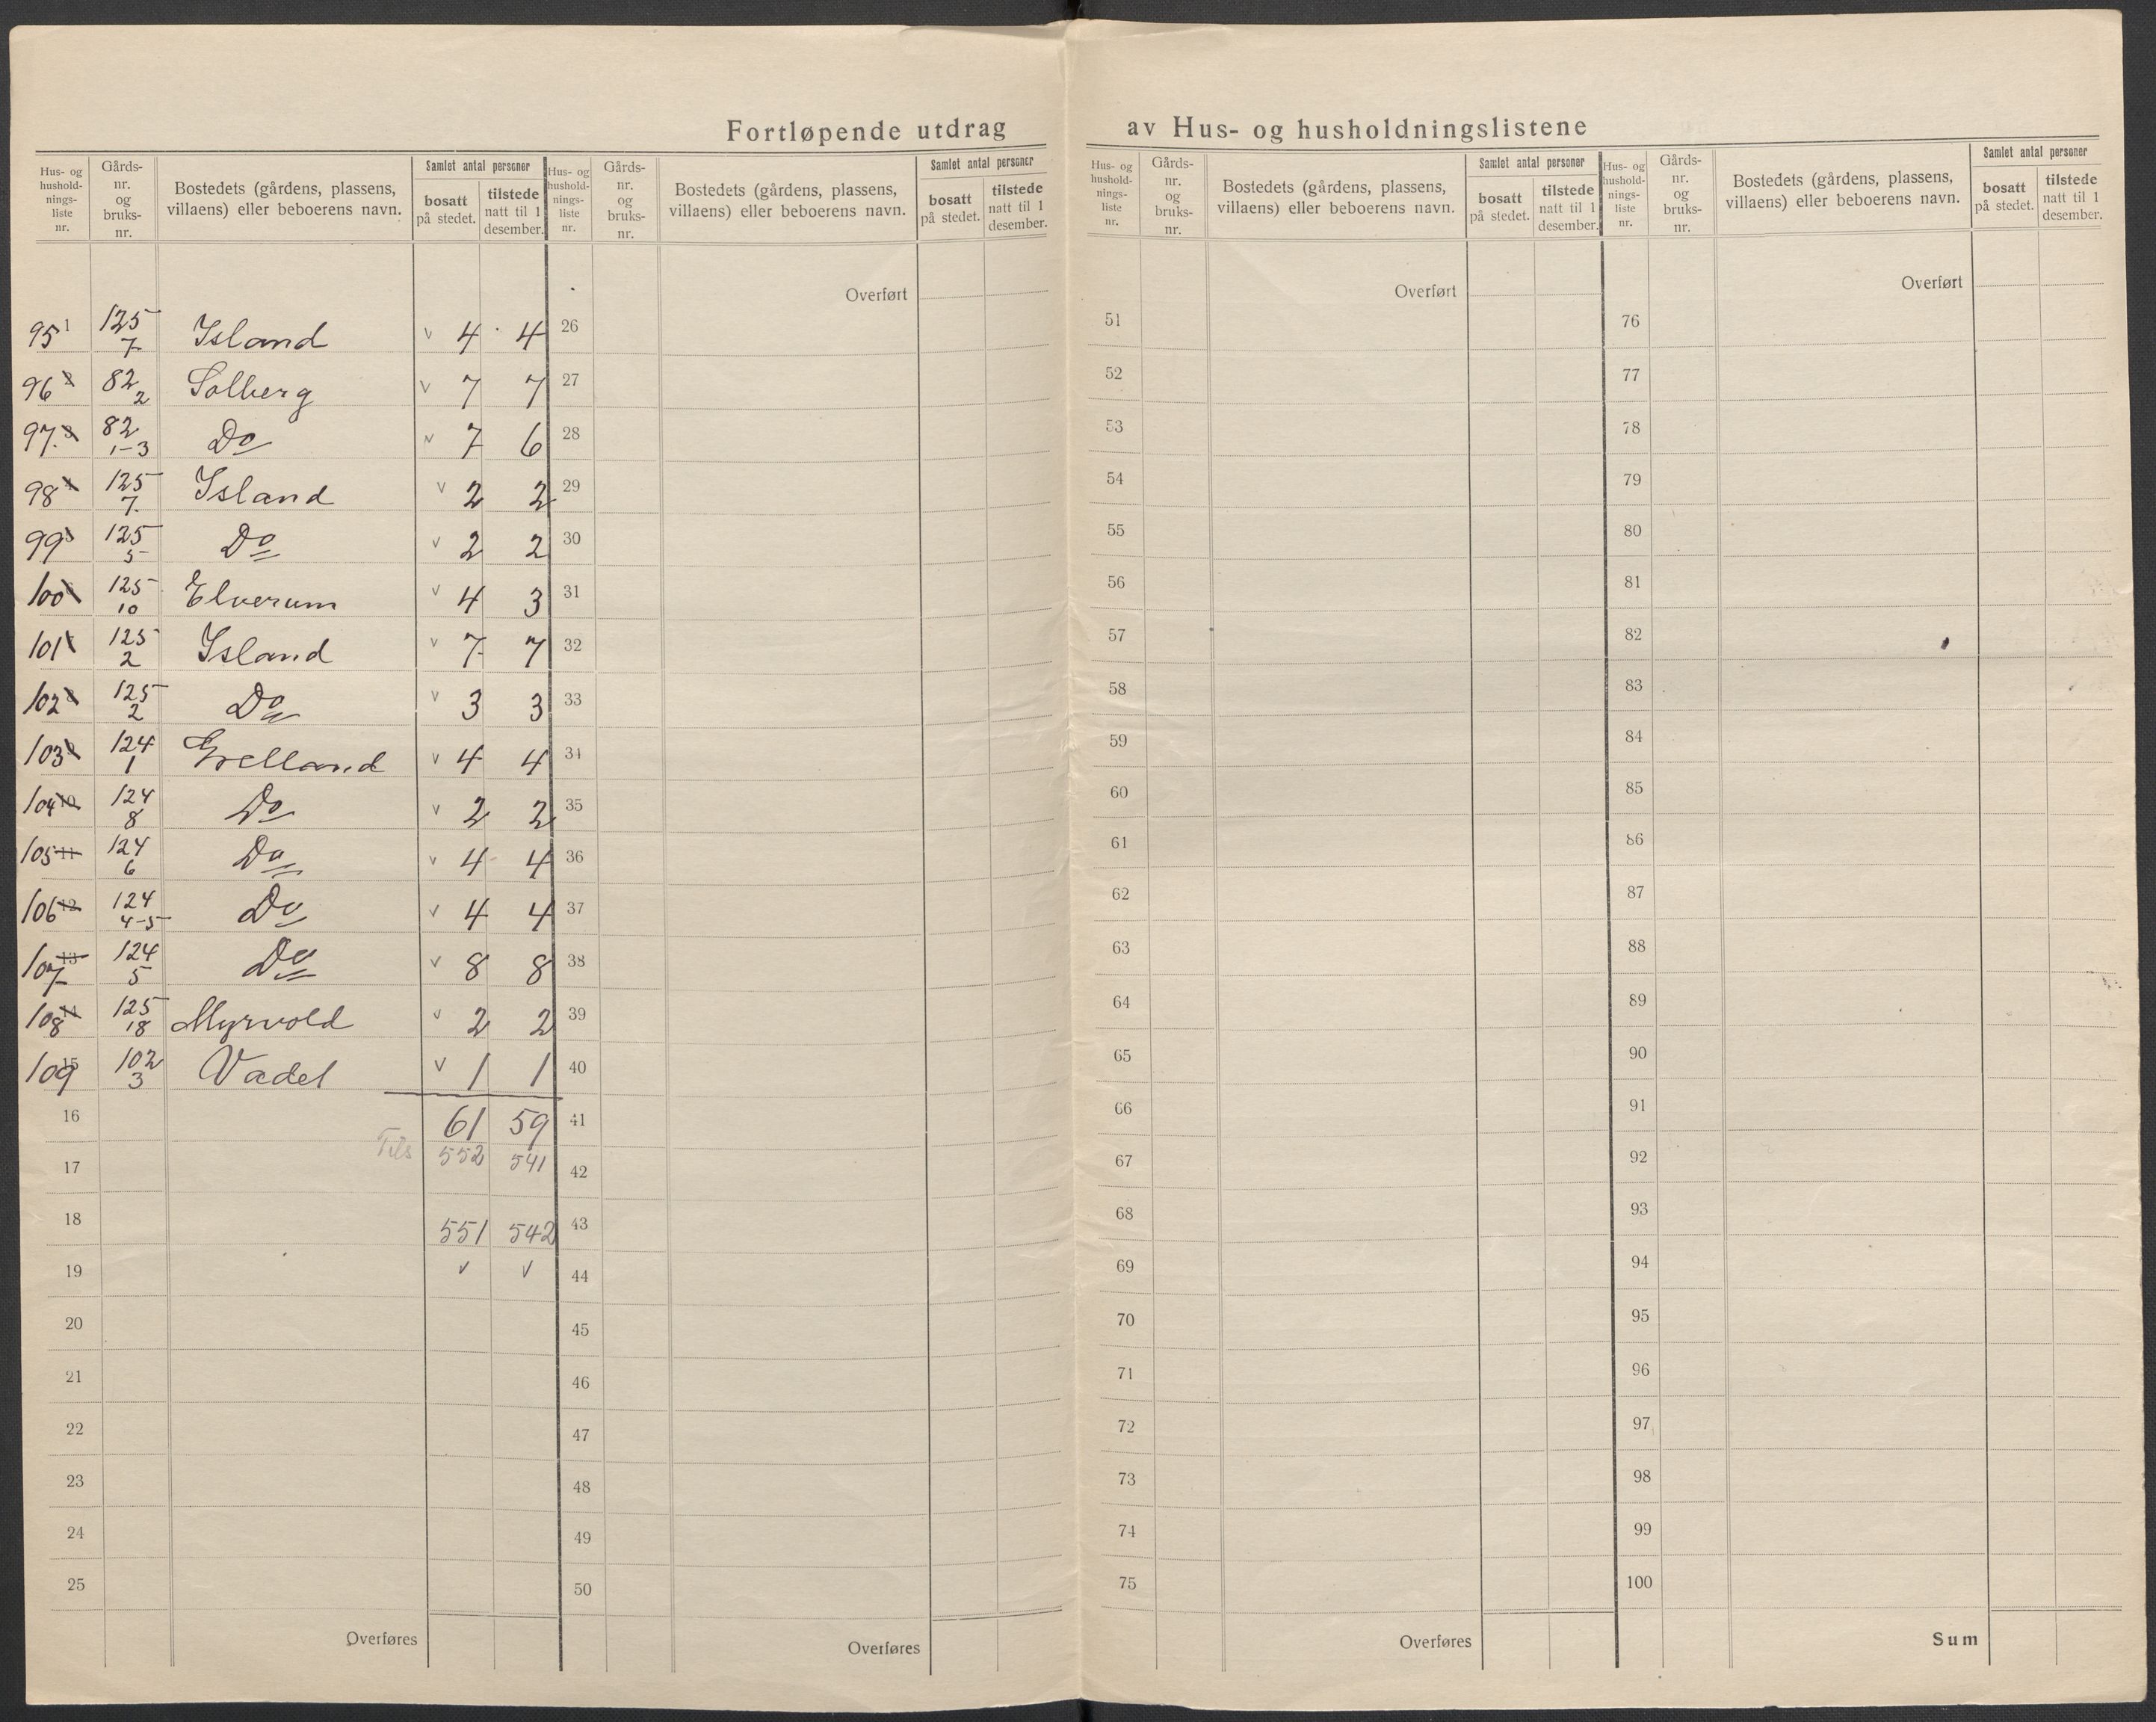 Fortløpende utdrag av Hus- og husholdningslistene
Hus- og hushold-nings-liste nr. Gårds-nr. og bruks-nr. Bostedets (gårdens, plassens, villaens) eller beboerens navn. Samlet antal personer bosatt på stedet. tilstede natt til 1 desember.
95 1 125 7 Island v 4 4
96 2 82 2 Solberg v 7 7
97 3 82 1-3 Do v 7 6
98 4 125 7 Island v 2 2
99 5 125 5 Do v 2 2
100 125 10 Elverum v 4 3
101 125 2 Island v 7 7
102 125 2 Do v 3 3
103 124 1 Grelland v 4 4
104 10 124 8 Do v 2 2
105 11 124 6 Do v 4 4
106 12 124 4-5 Do v 4 4
107 13 124 5 Do v 8 8
108 14 125 18 Myrvold v 2 2
109 15 102 3 Vadet v 1 1
16 61 59
Tils 552 541
17
18 551 542
19 v v
20
21
22
23
24
25
Overføres
Hus- og hushold-nings-liste nr. Gårds-nr. og bruks-nr. Bostedets (gårdens, plassens, villaens) eller beboerens navn. Samlet antal personer bosatt på stedet. tilstede natt til 1 desember.
Overført
26
27
28
29
30
31
32
33
34
35
36
37
38
39
40
41
42
43
44
45
46
47
48
49
50
Overføres
Hus- og hushold-nings-liste nr. Gårds-nr. og bruks-nr. Bostedets (gårdens, plassens, villaens) eller beboerens navn. Samlet antal personer bosatt på stedet. tilstede natt til 1 desember.
Overført
51
52
53
54
55
56
57
58
59
60
61
62
63
64
65
66
67
68
69
70
71
72
73
74
75
Overføres
Hus- og hushold-nings-liste nr. Gårds-nr. og bruks-nr. Bostedets (gårdens, plassens, villaens) eller beboerens navn. Samlet antal personer bosatt på stedet. tilstede natt til 1 desember.
Overført
76
77
78
79
80
81
82
83
84
85
86
87
88
89
90
91
92
93
94
95
96
97
98
99
100
Sum